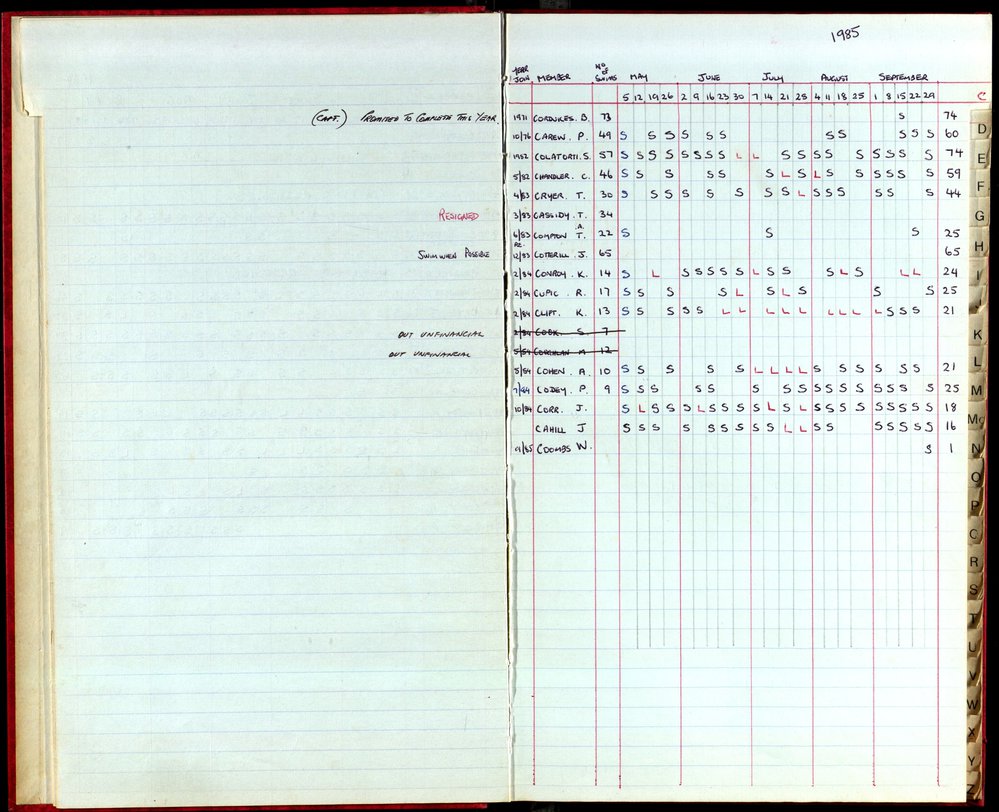 1985
YEAR JOIN MEMBER NO OF SWIMS MAY JUNE JULY AUGUST SEPTEMBER
5 12 19 26 2 9 16 23 30 7 14 21 28 4 11 18 25 1 8 15 22 29 C
(CAPT.) PROMISED TO COMPLETE THIS YEAR 1971 CORDUKES. B. 73 S 74
10/76 CAREW. P. 49 S S S S S S S S S S S 60
1952 COLATORTI. S. 57 S S S S S S S S L L S S S S S S S S S 74
5/82 CHANDLER. C. 46 S S S S S S L S L S S S S S S 59
4/83 CRYER. T. 30 S S S S S S S S L S S S S S S 44
RESIGNED 3/83 CASSIDY. T. 34
6/83 COMPTON A. T. 22 S S S 25
SWIM WHEN POSSIBLE RE. 12/83 COTTERILL. J. 65 65
2/84 CONROY. K. 14 S L S S S S S L S S S L S L L 24
2/84 CUPIC. R. 17 S S S S L S L S S S 25
2/84 CLIFT. K. 13 S S S S S L L L L L L L L L S S S S 21
OUT UNFINANCIAL 2/84 COOK S. 7
OUT UNFINANCIAL 5/84 M 12
5/84 COHEN. A. 10 S S S S S L L L L S S S S S S S 21
7/84 CODEY. P. 9 S S S S S S S S S S S S S S S S 25
10/84 CORR. J. S L S S S L S S S S L S L S S S S S S S S S 18
CAHILL J S S S S S S S S S L L S S S S S S S 16
9/85 COOMBS W. S 1
D
E
F
G
H
I
J
K
L
M
Mc
N
O
P
C
R
S
T
U
V
W
X
Y
Z